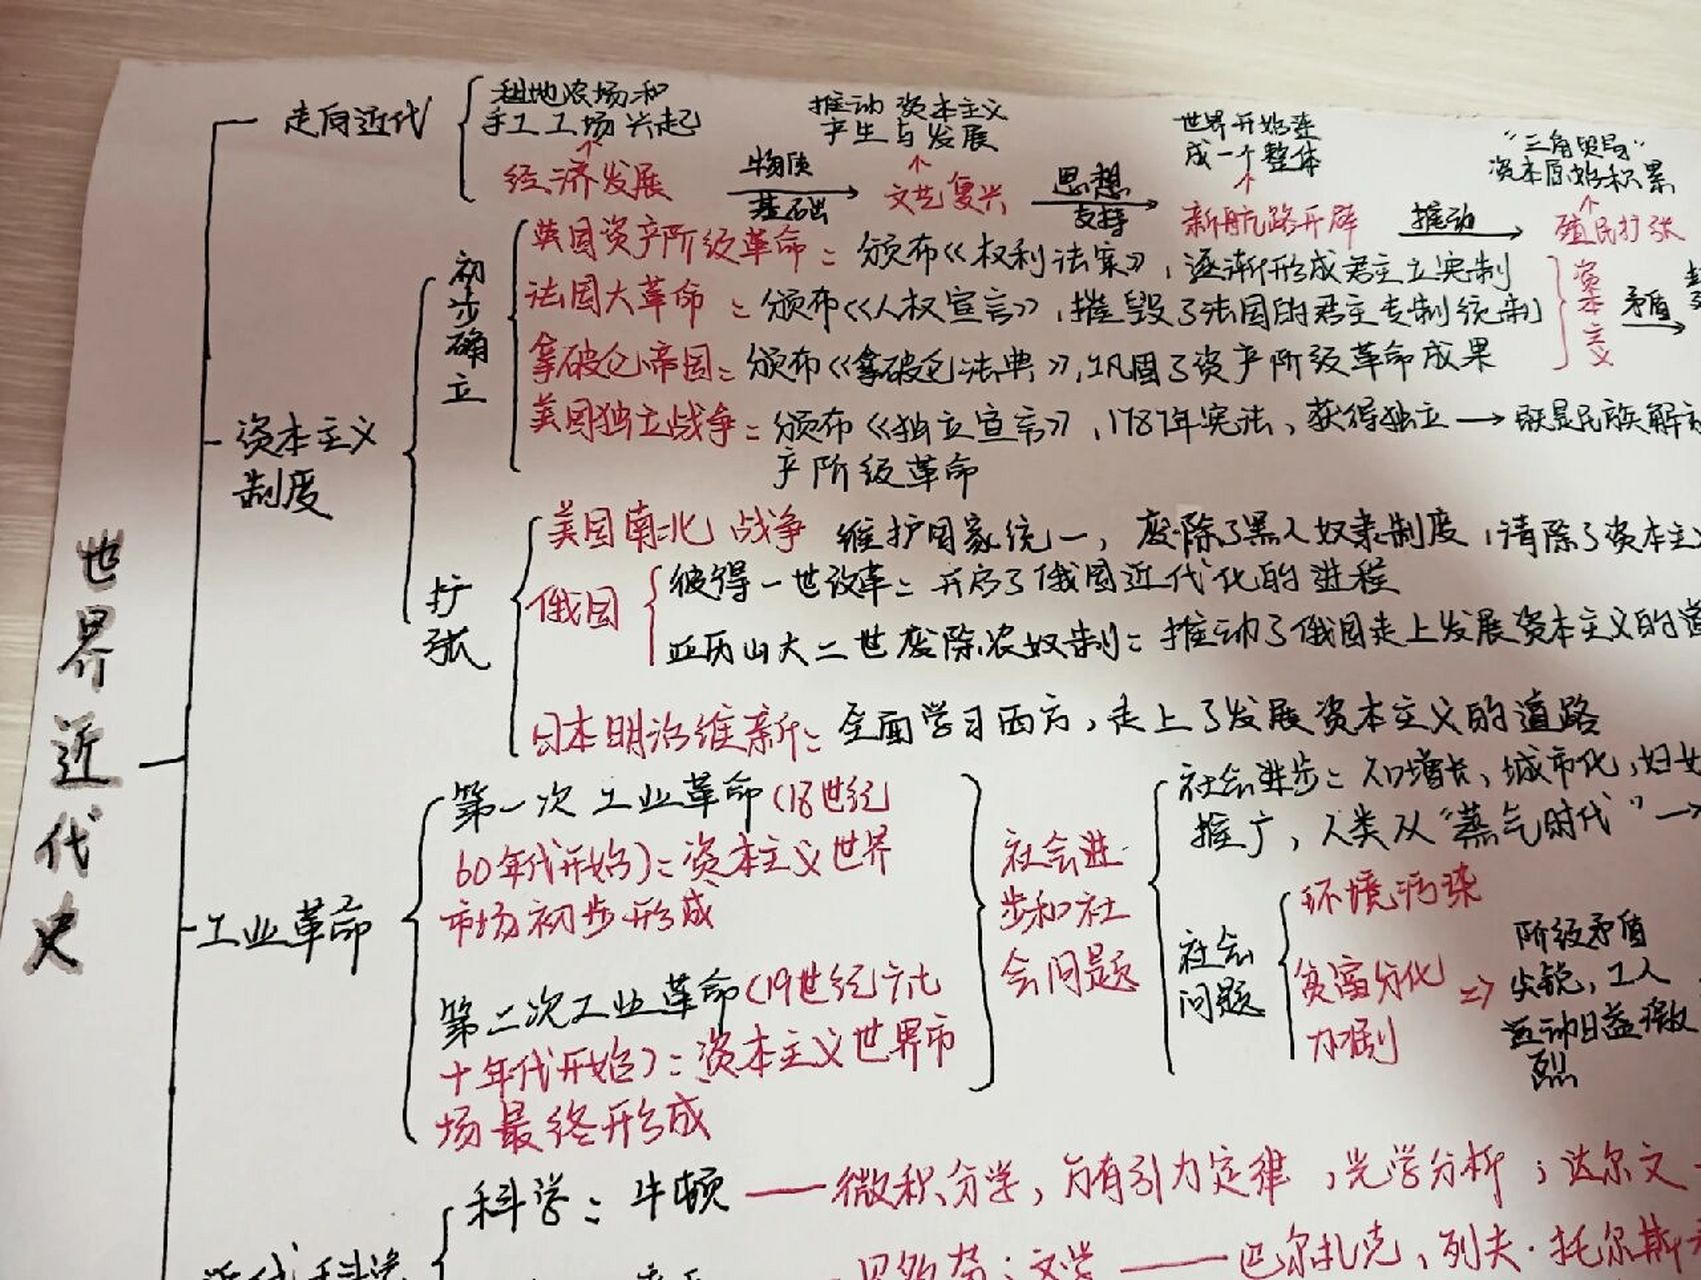 世界近代史
走向近代
租地农场和
手工工场兴起
经济发展
物质
基础
推动资本主义
产生与发展
文艺复兴
思想
支持
世界开始连
成一个整体
新航路开辟
推动
“三角贸易”
资本原始积累
殖民扩张
资本主义
制度
初步确立
英国资产阶级革命：颁布《权利法案》，逐渐形成君主立宪制
法国大革命：颁布《人权宣言》，摧毁了法国的君主专制统制
拿破仑帝国：颁布《拿破仑法典》，巩固了资产阶级革命成果
美国独立战争：颁布《独立宣言》，1787年宪法，获得独立→既是民族解
产阶级革命
资本主义
矛盾
扩张
美国南北战争 维护国家统一，废除了黑人奴隶制度，清除了资本主
俄国
彼得一世改革：开启了俄国近代化的进程
亚历山大二世废除农奴制：推动了俄国走上发展资本主义的道
日本明治维新：全面学习西方，走上了发展资本主义的道路
工业革命
第一次工业革命(18世纪
60年代开始)：资本主义世界
市场初步形成
第二次工业革命(19世纪六七
十年代开始)：资本主义世界市
场最终形成
社会进
步和社
会问题
社会进步：人口增长，城市化，妇女
推广，人类从“蒸气时代”→
社会
问题
环境污染
贫富分化
加剧
⇒
阶级矛盾
尖锐，工人
运动日益激
烈
近代科学
科学：牛顿——微积分学，万有引力定律，光学分析；达尔文
贝多芬；文学——巴尔扎克，列夫·托尔斯